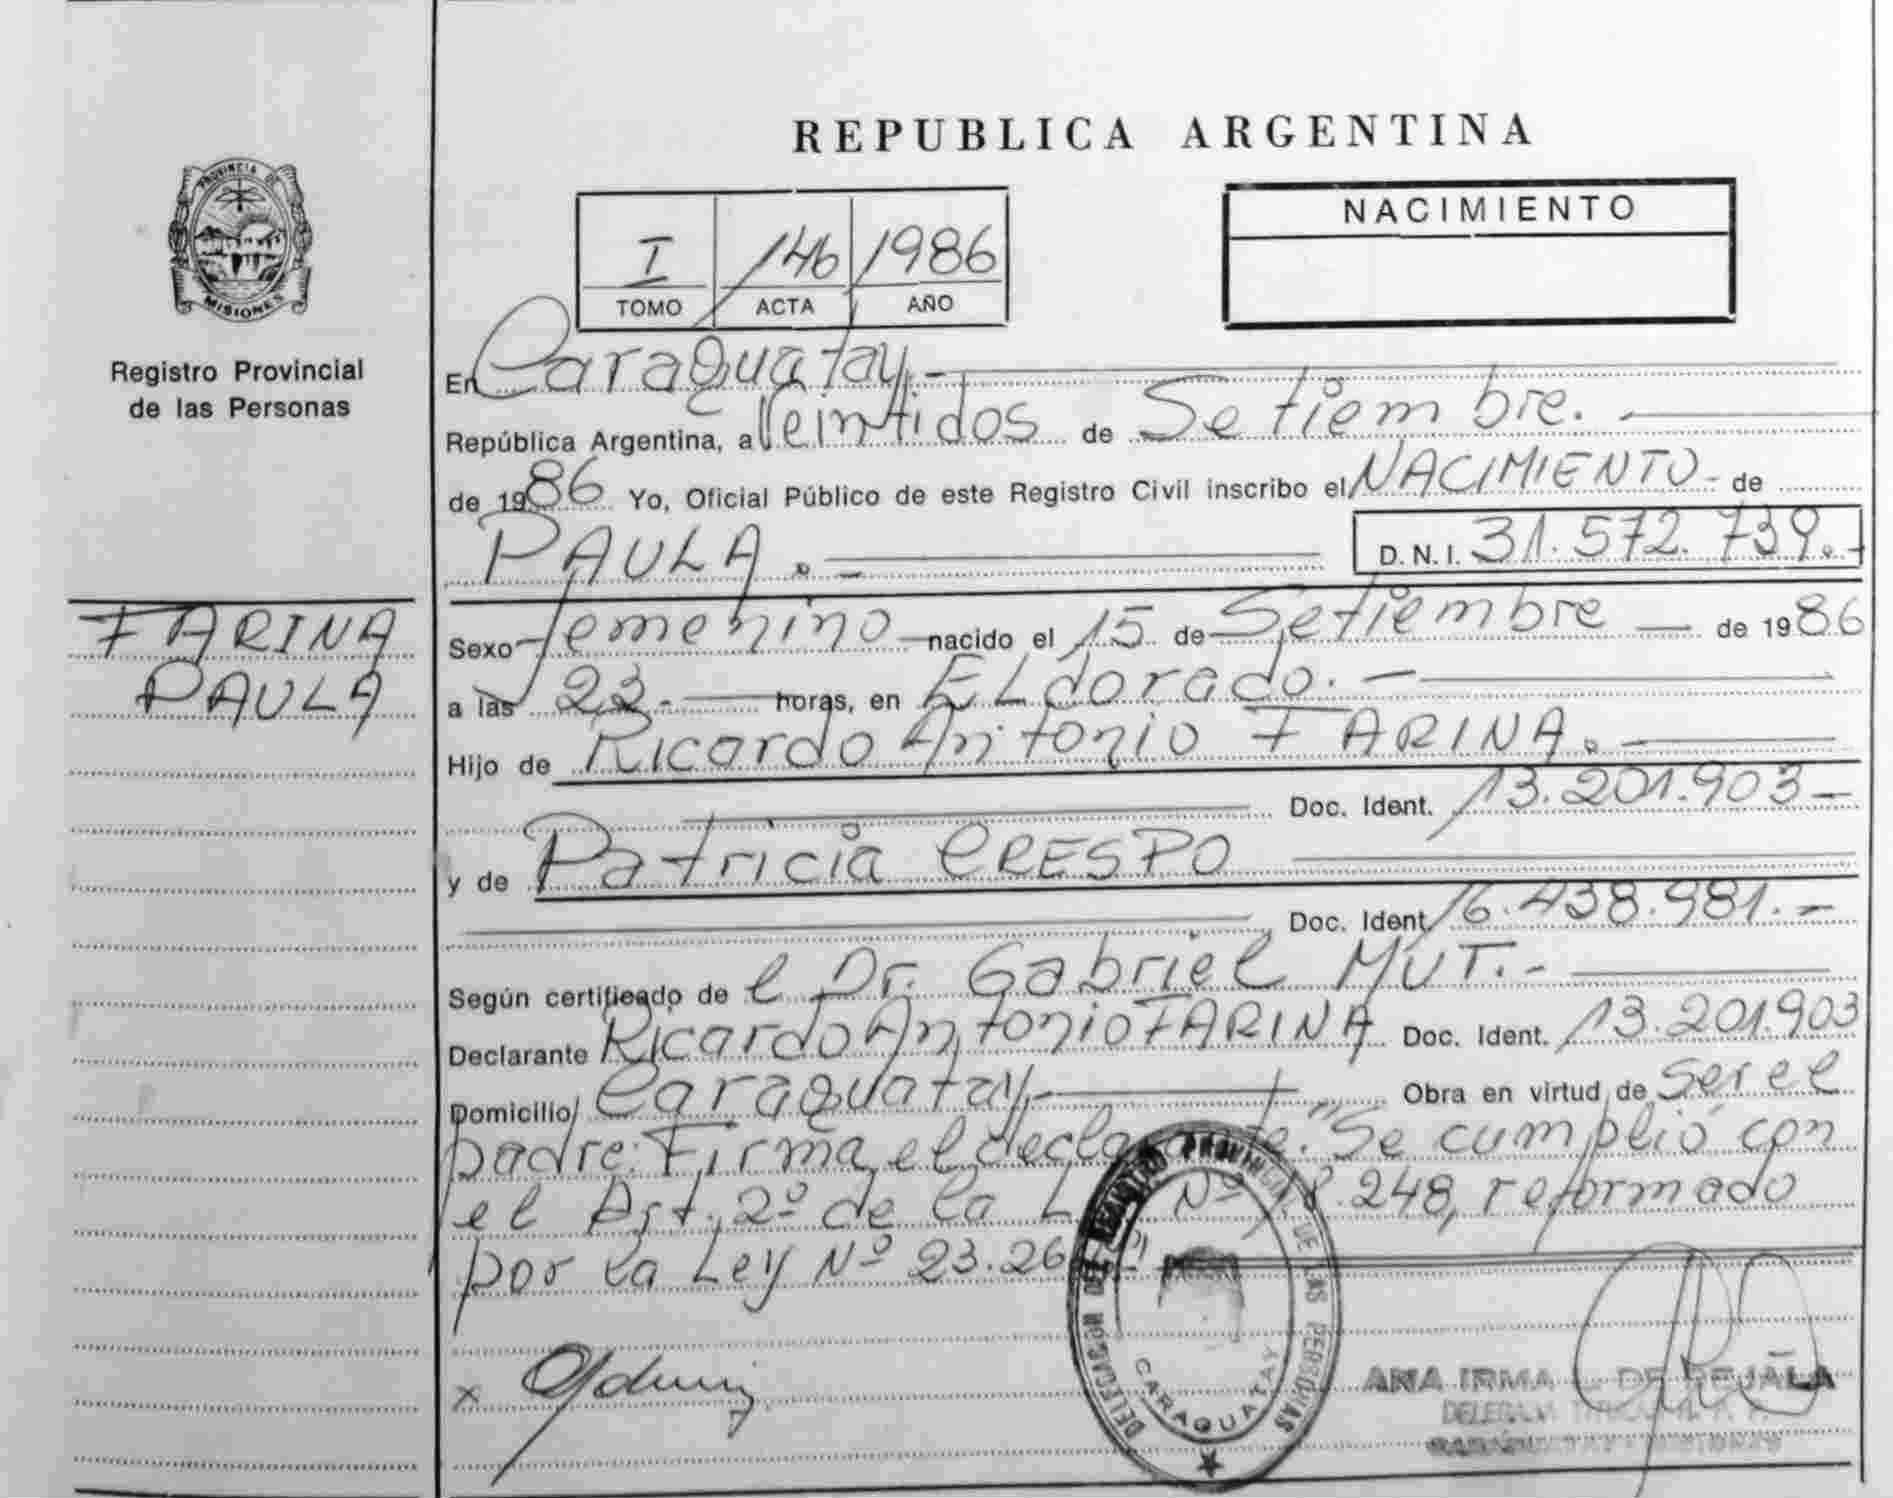 PROVINCIA DE
MISIONES
Registro Provincial
de las Personas
FARINA
PAULA
REPUBLICA ARGENTINA
I 146 1986
TOMO ACTA AÑO
NACIMIENTO
En Caraguatay.-
República Argentina, a Veintidos de Setiembre.
de 1986 Yo, Oficial Público de este Registro Civil inscribo el NACIMIENTO- de
PAULA.- D.N.I. 31.572.739.-
Sexo femenino nacido el 15 de Setiembre de 1986
a las 23.- horas, en ELdorado.-
Hijo de Ricardo Antonio FARINA.
Doc. Ident. 13.201.903-
y de Patricia CRESPO
Doc. Ident. 16.438.981.-
Según certificado de l Dr. Gabriel MUT.-
Declarante Ricardo Antonio FARINA Doc. Ident. 13.201.903
Domicilio Caraguatay.- Obra en virtud de ser el
padre. Firma el declarante. "Se cumplió con
el Art. 2º de la Nº 18.248, reformado
por la Ley Nº 23.26
x
DELEGACION DEL REGISTRO PROVINCIAL DE LAS PERSONAS
CARAGUATAY
ANA IRMA DE REJALA